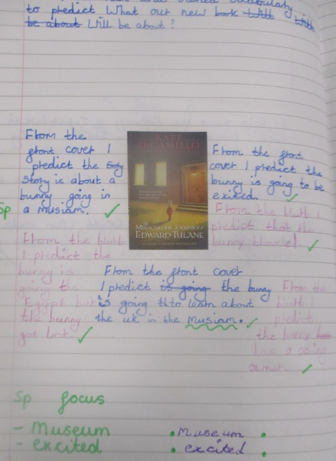 to predict What our new book will
be about Will be about?
From the
front cover I
predict the
story is about a
bunny going in
a musiam.
Sp
KATE
DiCAMILLO
EDWARD TULANE
From the front
cover I predict the
bunny is going to be
exited.
From the blurb I
predict that the
From the blurb
I predict the
bunny is
going to
Egypt but
the bunny
got lost
From the front cover
I predict is going the bunny
is going to learn about
the uk in the musiam.
From the
blurb I
predict
the
owner
Sp focus
- Museum
- excited
• Museum •
• excited •